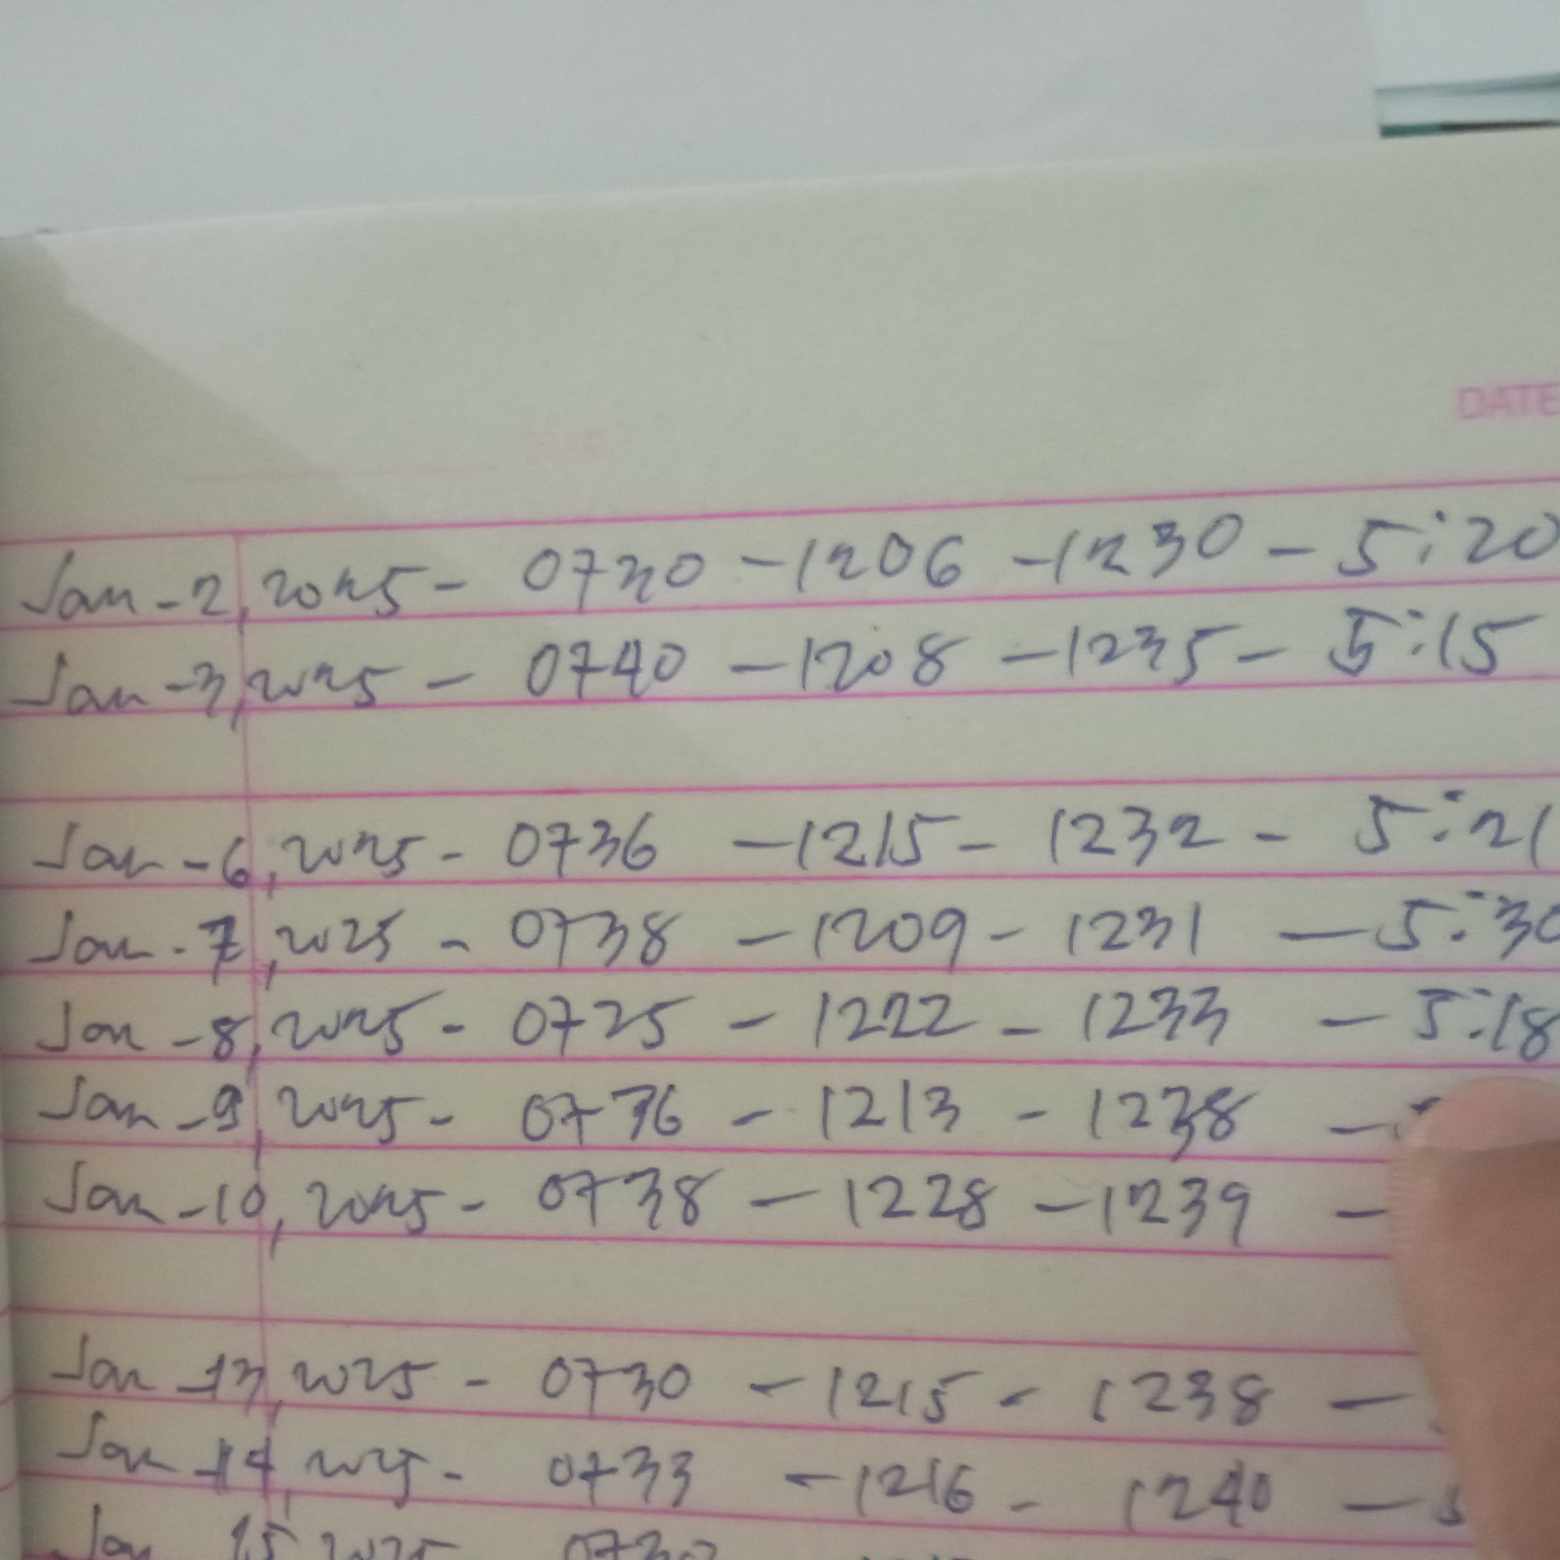 DATE
Jan - 2, 2025 - 0720 - 1206 - 1230 - 5:20
Jan - 3, 2025 - 0740 - 1208 - 1235 - 5:15
Jan - 6, 2025 - 0736 - 1215 - 1232 - 5:21
Jan - 7, 2025 - 0738 - 1209 - 1231 - 5:30
Jan - 8, 2025 - 0725 - 1222 - 1233 - 5:18
Jan - 9, 2025 - 0736 - 1213 - 1238 -
Jan - 10, 2025 - 0738 - 1228 - 1239 -
Jan - 13, 2025 - 0730 - 1215 - 1238 -
Jan - 14, 2025 - 0733 - 1216 - 1240 -
Jan 15, 2025 0730